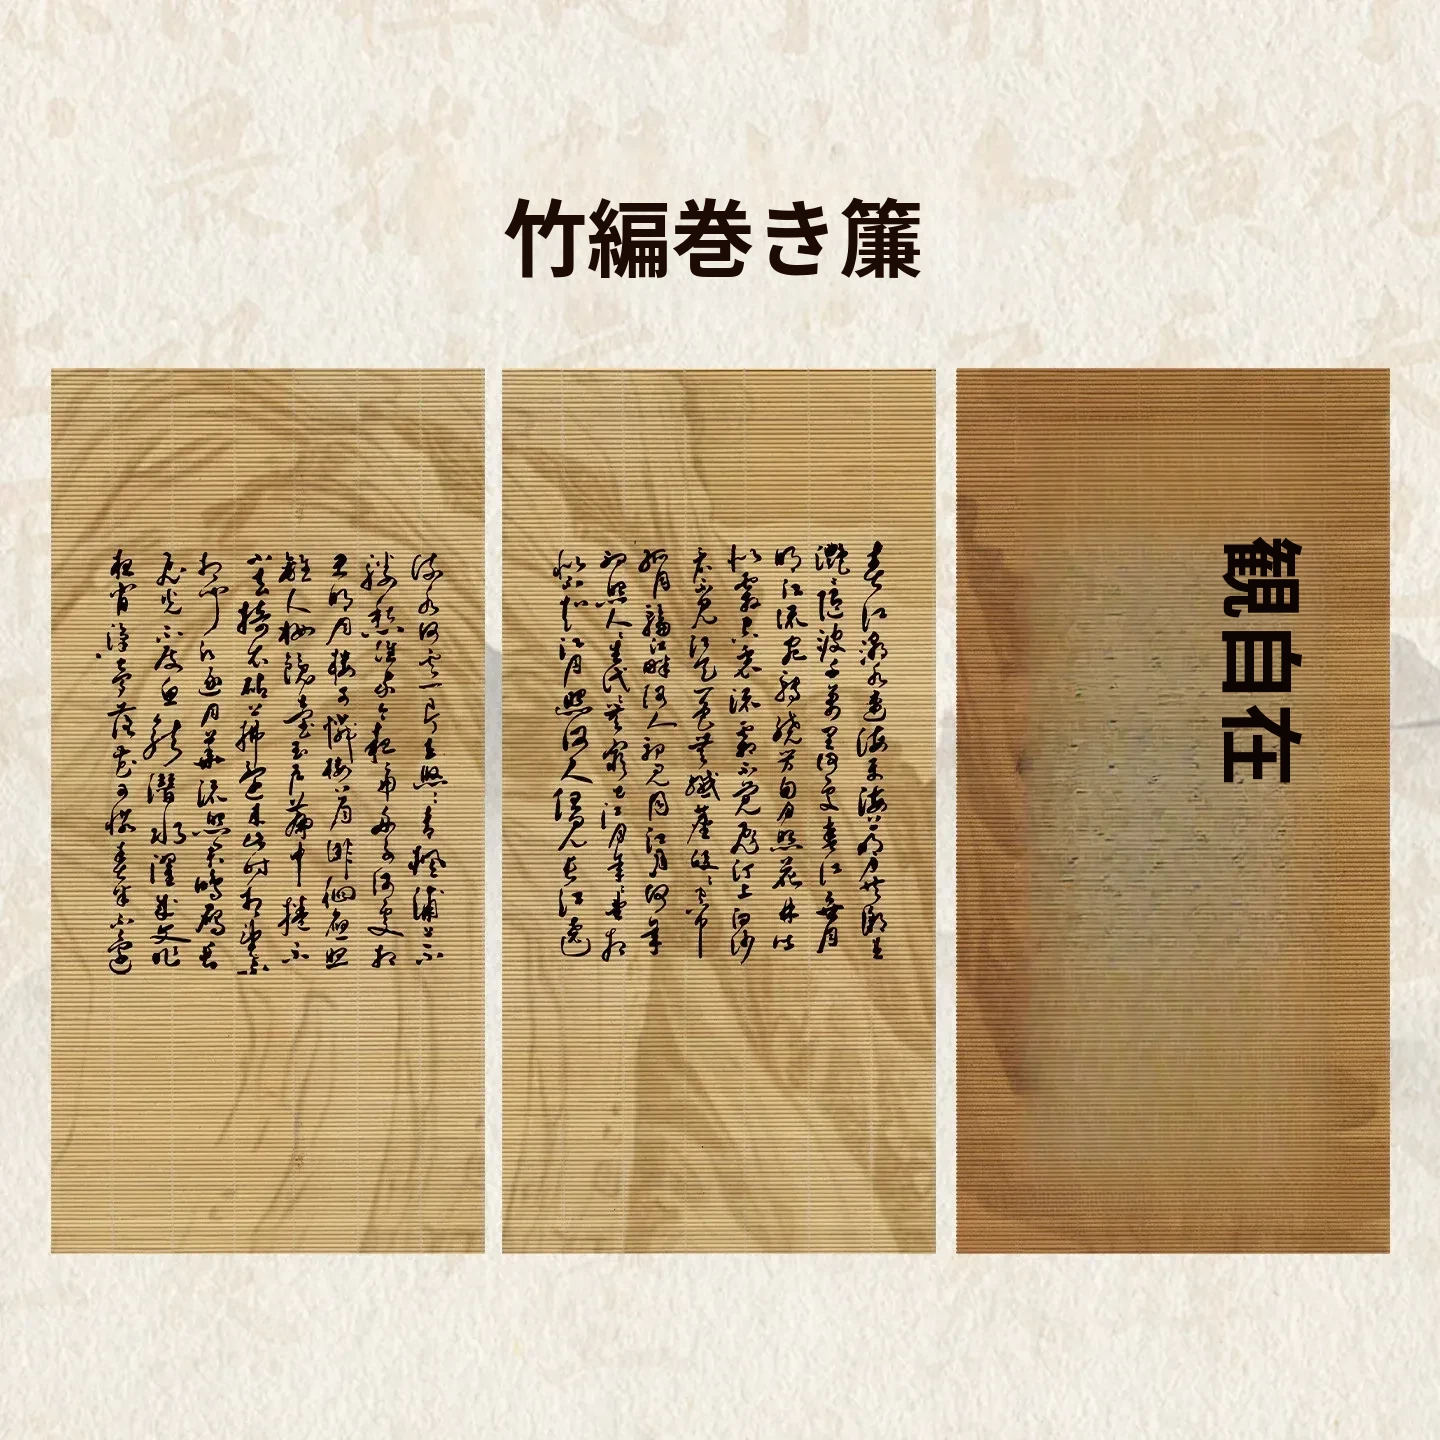 竹編巻き簾
観自在
春江潮水連海平海上明月共潮生
灔灔隨波千萬里何處春江無月
明江流宛轉繞芳甸月照花林皆
似霰空裏流霜不覺飛汀上白沙
看不見江天一色無纖塵皎皎空中
孤月輪江畔何人初見月江月何年
初照人人生代代無窮已江月年年望相
似不知江月照何人但見長江送
流水白雲一片去悠悠青楓浦上不
勝愁誰家今夜扁舟子何處相
思明月樓可憐樓上月徘徊應照
離人妝鏡臺玉戶簾中捲不
去擣衣砧上拂還來此時相望不
相聞願逐月華流照君鴻雁長
飛光不度魚龍潛躍水成文昨
夜閒潭夢落花可憐春半不還